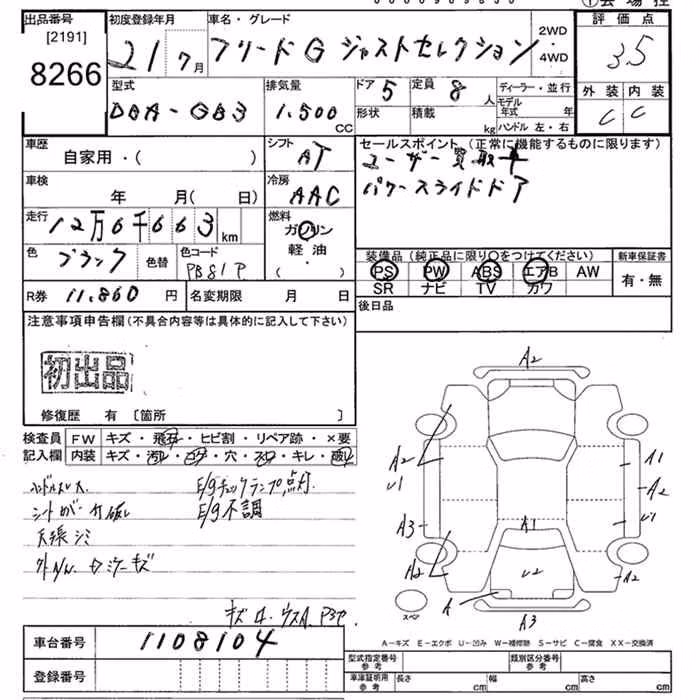 出品番号 初度登録年月 車名・グレード 2WD ・ 4WD 評価点
[2191]
8266 21 7月 フリード G ジャストセレクション 3.5
型式 排気量 ドア 定員 ディーラー・並行 外装 内装
DBA-GB3 1.500 CC 5 8人 モデル年式 年 C C
形状 積載 kg ハンドル 左・右
車歴 シフト セールスポイント (正常に機能するものに限ります)
自家用・( ) AT ユーザー買取車
車検 冷房 パワースライドドア
年 月( 日) AAC
走行 燃料
12万6千663km ガソリン
色 色替 色コード 軽油 装備品 (純正品に限り○をつけてください) 新車保証書
ブラック PB81P ・ ( ) PS PW ABS エアB AW 有・無
SR ナビ TV カワ
R券 11.860 円 名変期限 月 日 後日品
注意事項申告欄 (不具合内容等は具体的に記入して下さい)
初出品
修復歴 有 〔箇所 〕
検査員 FW キズ・飛石・ヒビ割・リペア跡・×要
記入欄 内装 キズ・汚れ・コゲ・穴・スレ・キレ・破レ
ハンドルスレ大 E/gチェックランプ点灯
シートカバー付 破レ E/g不調
天張シミ
A2
A2 U1 A1 A2 U1
A3 A1
A2 U2 A2
A A3
スペア
A-キズ E-エクボ U-凹み W-補修跡 S-サビ C-腐食 XX-交換済
車台番号 1108104
型式指定番号 参考 類別区分番号 参考
登録番号 車庫証明用 参考 長さ cm 幅 cm 高さ cm